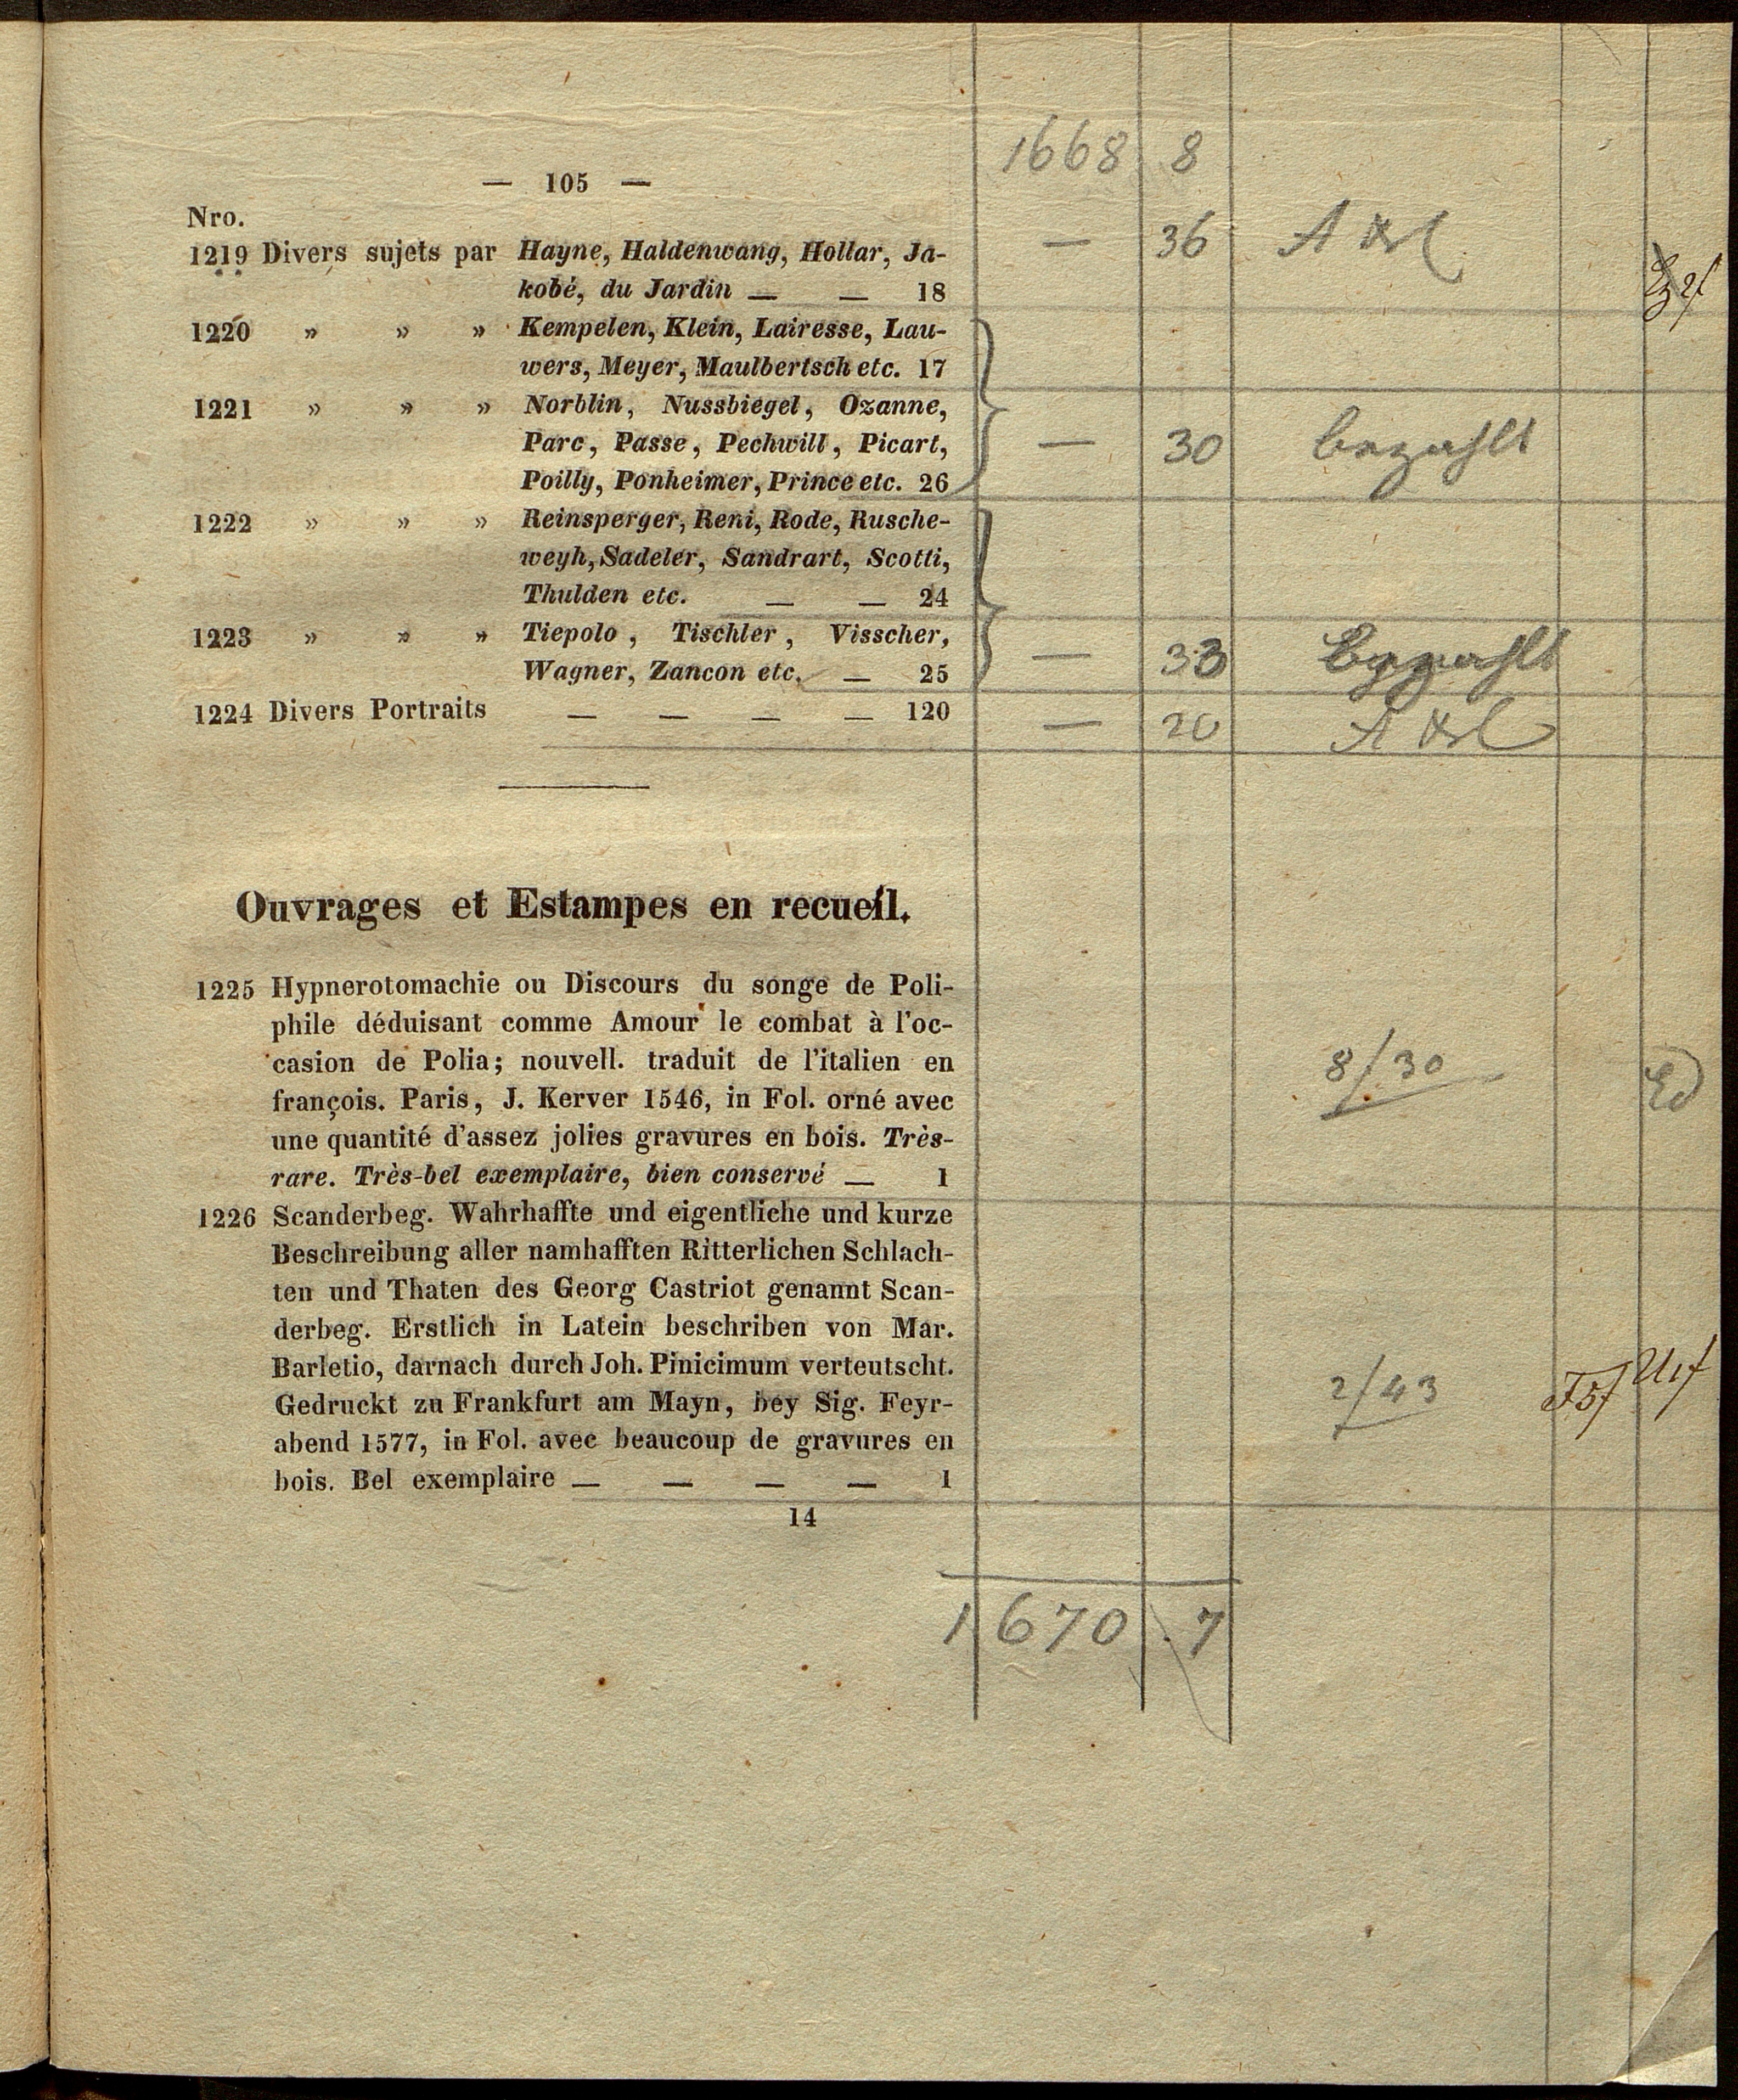 1668 8
— 105 —
Nro.
1219 Divers sujets par Hayne, Haldenwang, Hollar, Ja- — 36
kobé, du Jardin — — 18
1220 » » » Kempelen, Klein, Lairesse, Lau-
wers, Meyer, Maulbertsch etc. 17
1221 » » » Norblin, Nussbiegel, Ozanne,
Parc, Passe, Pechwill, Picart, — 30 bezahlt
Poilly, Ponheimer, Prince etc. 26
1222 » » » Reinsperger, Reni, Rode, Rusche-
weyh, Sadeler, Sandrart, Scotti,
Thulden etc. — — 24
1223 » » » Tiepolo, Tischler, Visscher,
Wagner, Zancon etc. — 25 — 33 bezahlt
1224 Divers Portraits — — — — 120 — 20
Ouvrages et Estampes en recueil.
1225 Hypnerotomachie ou Discours du songe de Poli-
phile déduisant comme Amour le combat à l'oc-
casion de Polia; nouvell. traduit de l'italien en 8/30
françois. Paris, J. Kerver 1546, in Fol. orné avec
une quantité d'assez jolies gravures en bois. Très-
rare. Très-bel exemplaire, bien conservé — 1
1226 Scanderbeg. Wahrhaffte und eigentliche und kurze
Beschreibung aller namhafften Ritterlichen Schlach-
ten und Thaten des Georg Castriot genannt Scan-
derbeg. Erstlich in Latein beschriben von Mar.
Barletio, darnach durch Joh. Pinicimum verteutscht. 2/43
Gedruckt zu Frankfurt am Mayn, bey Sig. Feyr-
abend 1577, in Fol. avec beaucoup de gravures en
bois. Bel exemplaire — — — — 1
14
1670 7